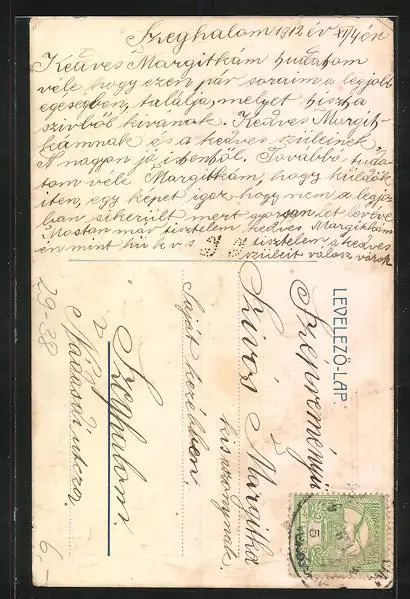 Szeghalom 1912 év XI/4én
Kedves Margitkám tudatom
véle hogy ezen pár soraim a legjobb
egéségben, találja, melyet tiszta
szivböl kivánok. Kedves Margit-
kámnak és a kedves szüleinek,
A nagyon jó istentöl. Továbbá tuda-
tom véle Margitkám, hogy küldök
itten, egy képet igaz hogy nem a legjob-
ban sikerült mert gyorsan let levéve
Mostan már tisztelem kedves Margitkám
én mint hü k v s tisztelem a kedves
szüleit válosz várok
LEVELEZŐ-LAP.
Szépreményü
Szivós Margitka
kis aszonynak.
Saját kezéhben.
Szeghalom.
Nádasdi utcza.
29-38
6-
5